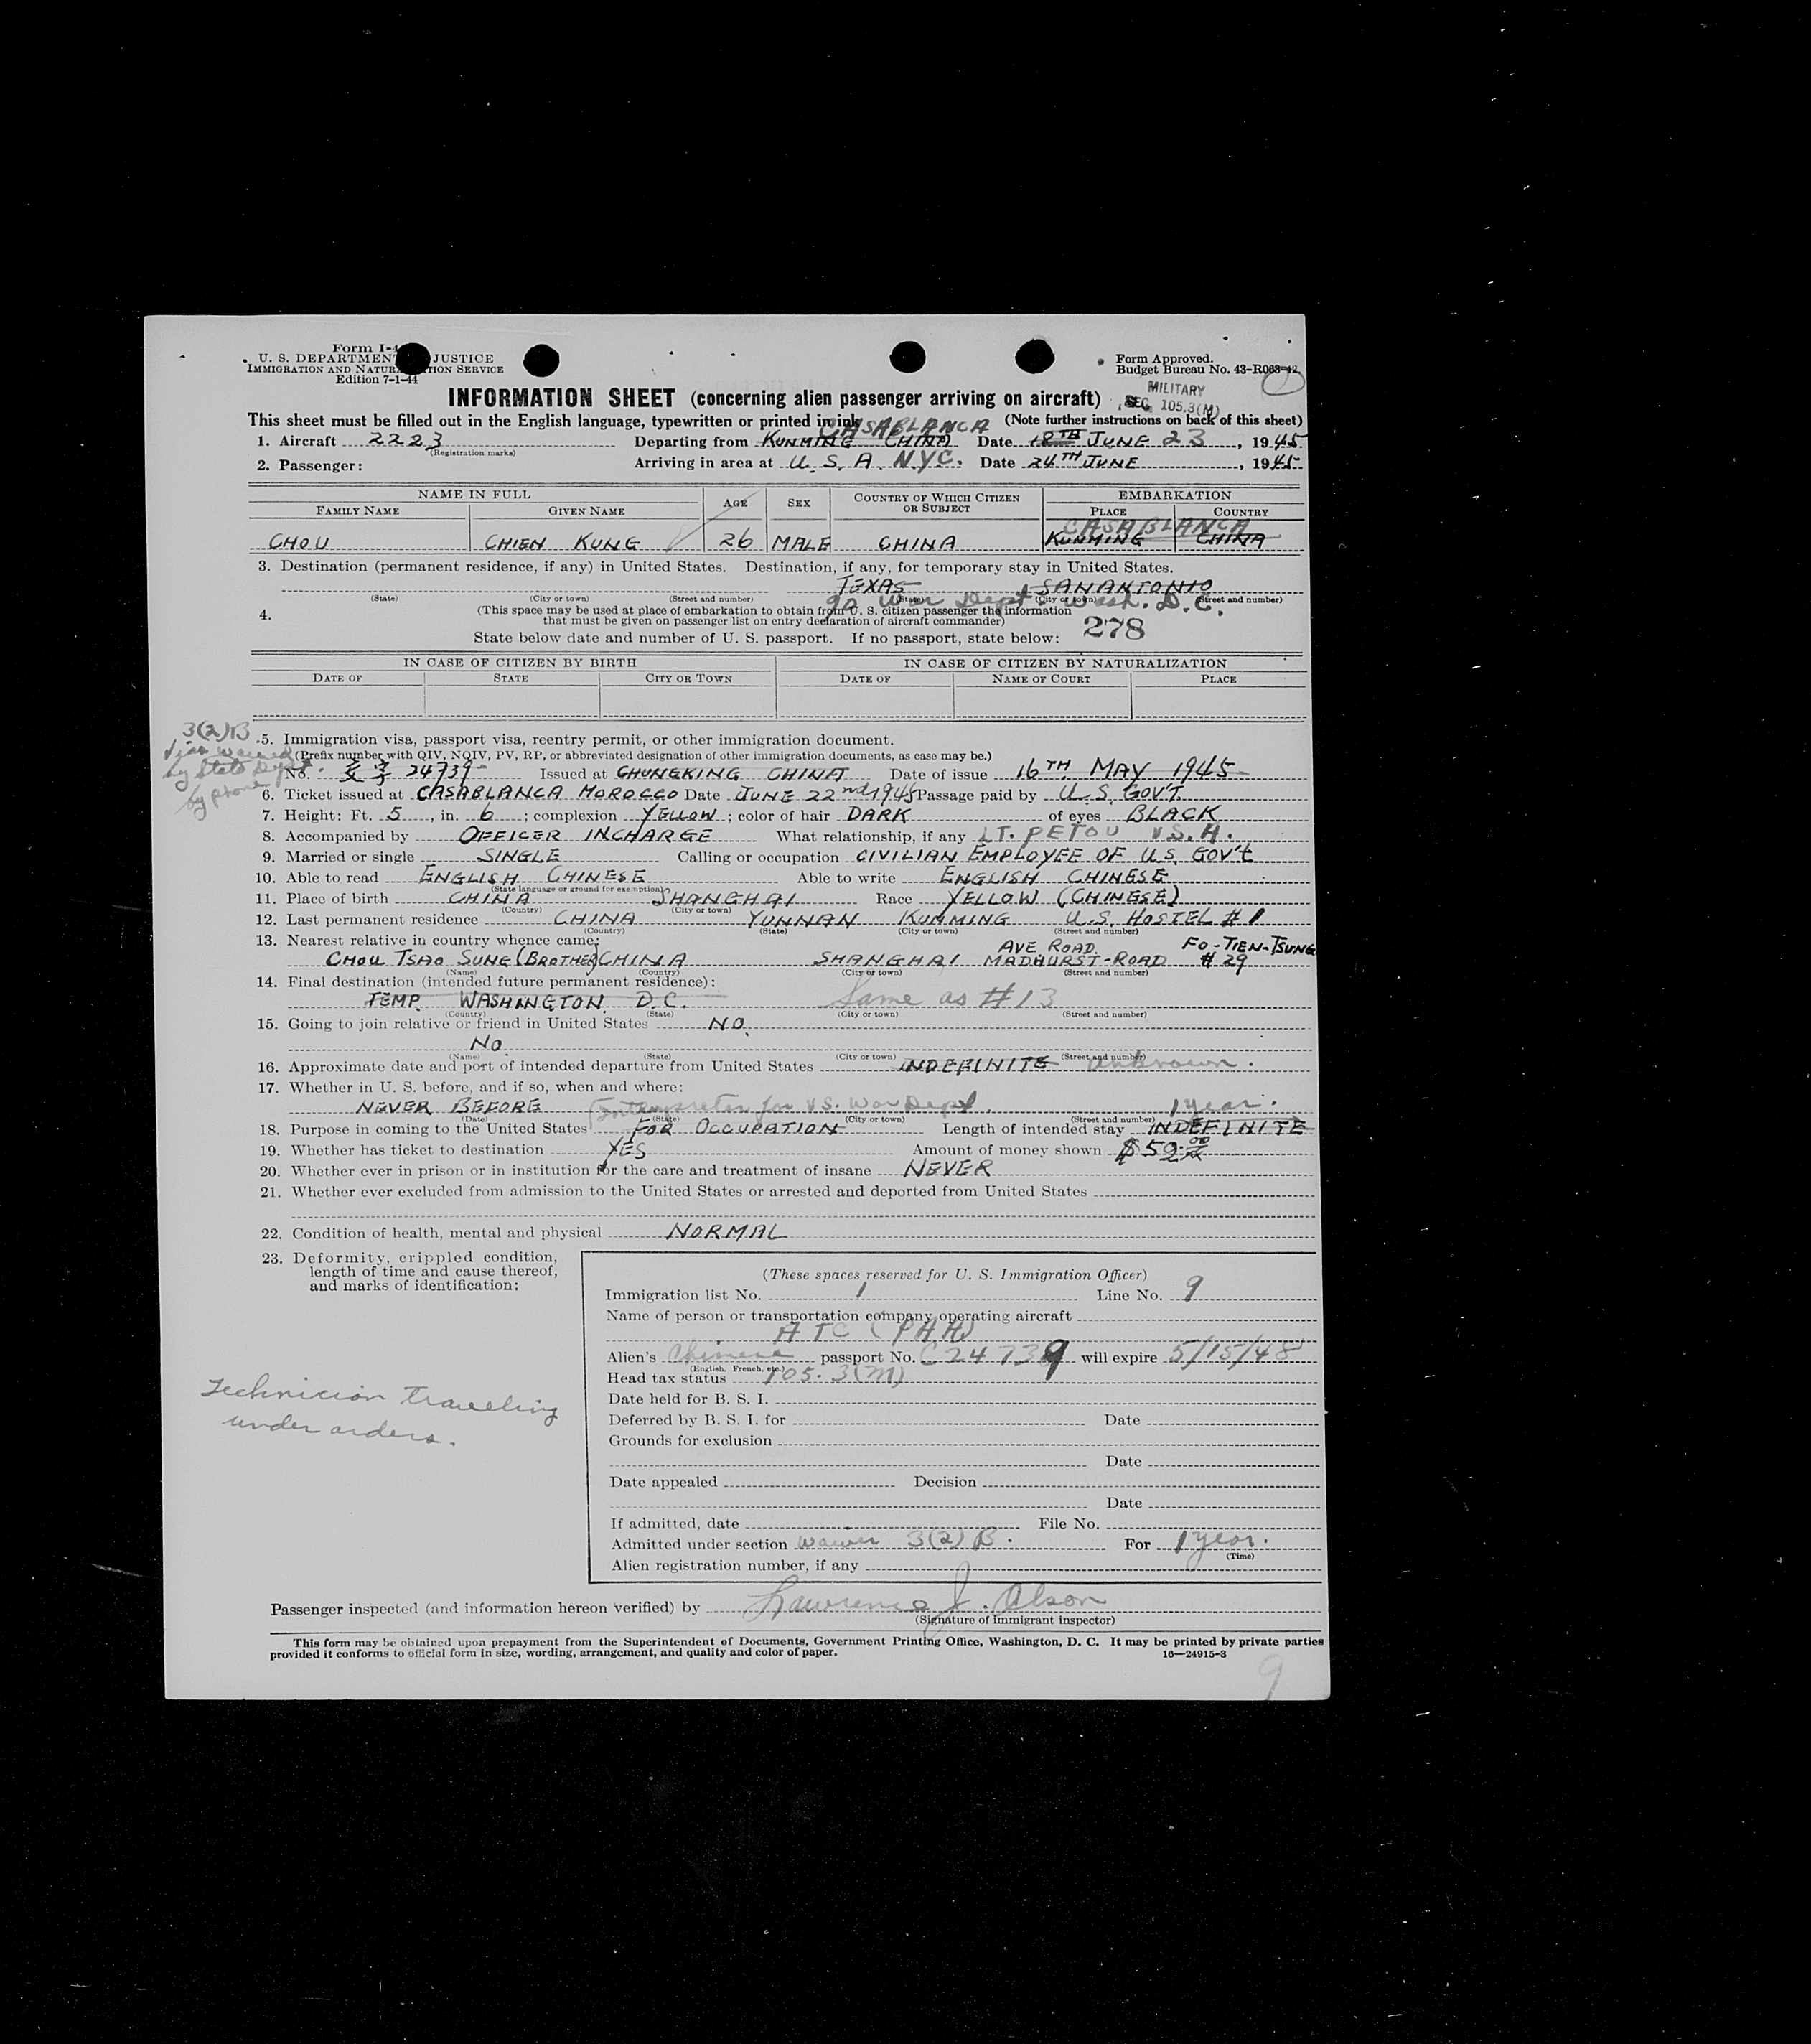 Form I-4
U. S. DEPARTMENT JUSTICE
IMMIGRATION AND NATURALIZATION SERVICE
Edition 7-1-44
Form Approved.
Budget Bureau No. 43-R063-42
MILITARY
SEC. 105.3(M)
INFORMATION SHEET (concerning alien passenger arriving on aircraft)
This sheet must be filled out in the English language, typewritten or printed in ink (Note further instructions on back of this sheet)
CASABLANCA
1. Aircraft 2223 Departing from KUNMING CHINA Date 18TH JUNE 23, 1945
(Registration marks)
2. Passenger: Arriving in area at U. S. A. N.Y.C. Date 24TH JUNE, 1945
NAME IN FULL AGE SEX COUNTRY OF WHICH CITIZEN OR SUBJECT EMBARKATION
FAMILY NAME GIVEN NAME PLACE COUNTRY
CASABLANCA
CHOU CHIEN KUNG 26 MALE CHINA KUNMING CHINA
3. Destination (permanent residence, if any) in United States. Destination, if any, for temporary stay in United States.
TEXAS SAN ANTONIO
(State) (City or town) (Street and number) (State) (City or town) (Street and number)
War Dept. Wash. D.C.
4. (This space may be used at place of embarkation to obtain from U. S. citizen passenger the information
that must be given on passenger list on entry declaration of aircraft commander)
278
State below date and number of U. S. passport. If no passport, state below:
IN CASE OF CITIZEN BY BIRTH IN CASE OF CITIZEN BY NATURALIZATION
DATE OF STATE CITY OR TOWN DATE OF NAME OF COURT PLACE
3(2)B
visa waived
by State Dept.
by phone
5. Immigration visa, passport visa, reentry permit, or other immigration document.
(Prefix number with QIV, NQIV, PV, RP, or abbreviated designation of other immigration documents, as case may be.)
No. 24739 Issued at CHUNGKING CHINA Date of issue 16TH MAY 1945
6. Ticket issued at CASABLANCA MOROCCO Date JUNE 22nd 1945 Passage paid by U.S. GOV'T.
7. Height: Ft. 5, in. 6; complexion YELLOW; color of hair DARK of eyes BLACK
8. Accompanied by OFFICER INCHARGE What relationship, if any LT. PETOU U.S.A.
9. Married or single SINGLE Calling or occupation CIVILIAN EMPLOYEE OF U.S. GOV'T
10. Able to read ENGLISH CHINESE Able to write ENGLISH CHINESE
(State language or ground for exemption)
11. Place of birth CHINA SHANGHAI Race YELLOW (CHINESE)
(Country) (City or town)
12. Last permanent residence CHINA YUNNAN KUNMING U.S. HOSTEL #1
(Country) (State) (City or town) (Street and number)
13. Nearest relative in country whence came:
AVE ROAD. FO-TIEN-TSUNG
CHOU TSAO SUNG (BROTHER) CHINA SHANGHAI MADHURST-ROAD #29
(Name) (Country) (City or town) (Street and number)
14. Final destination (intended future permanent residence):
TEMP. WASHINGTON D.C. Same as #13
(Country) (State) (City or town) (Street and number)
15. Going to join relative or friend in United States NO.
NO.
(Name) (State) (City or town) (Street and number)
16. Approximate date and port of intended departure from United States INDEFINITE unknown.
17. Whether in U. S. before, and if so, when and where:
NEVER BEFORE Interpreter for U.S. War Dept. 1 year.
(Date) (State) (City or town) (Street and number)
18. Purpose in coming to the United States FOR OCCUPATION Length of intended stay INDEFINITE
19. Whether has ticket to destination YES Amount of money shown $50.00
20. Whether ever in prison or in institution for the care and treatment of insane NEVER
21. Whether ever excluded from admission to the United States or arrested and deported from United States
22. Condition of health, mental and physical NORMAL
23. Deformity, crippled condition,
length of time and cause thereof,
and marks of identification:
Technician travelling
under orders.
(These spaces reserved for U. S. Immigration Officer)
Immigration list No. 1 Line No. 9
Name of person or transportation company operating aircraft
ATC (PAA)
Alien's Chinese passport No. C24739 will expire 5/15/48
(English, French, etc.)
Head tax status 105.3(M)
Date held for B. S. I.
Deferred by B. S. I. for Date
Grounds for exclusion
Date
Date appealed Decision
Date
If admitted, date File No.
Admitted under section waiver 3(2)B. For 1 year.
(Time)
Alien registration number, if any
Passenger inspected (and information hereon verified) by Lawrence J. Olson
(Signature of Immigrant inspector)
This form may be obtained upon prepayment from the Superintendent of Documents, Government Printing Office, Washington, D. C. It may be printed by private parties
provided it conforms to official form in size, wording, arrangement, and quality and color of paper. 16—24915-3
9